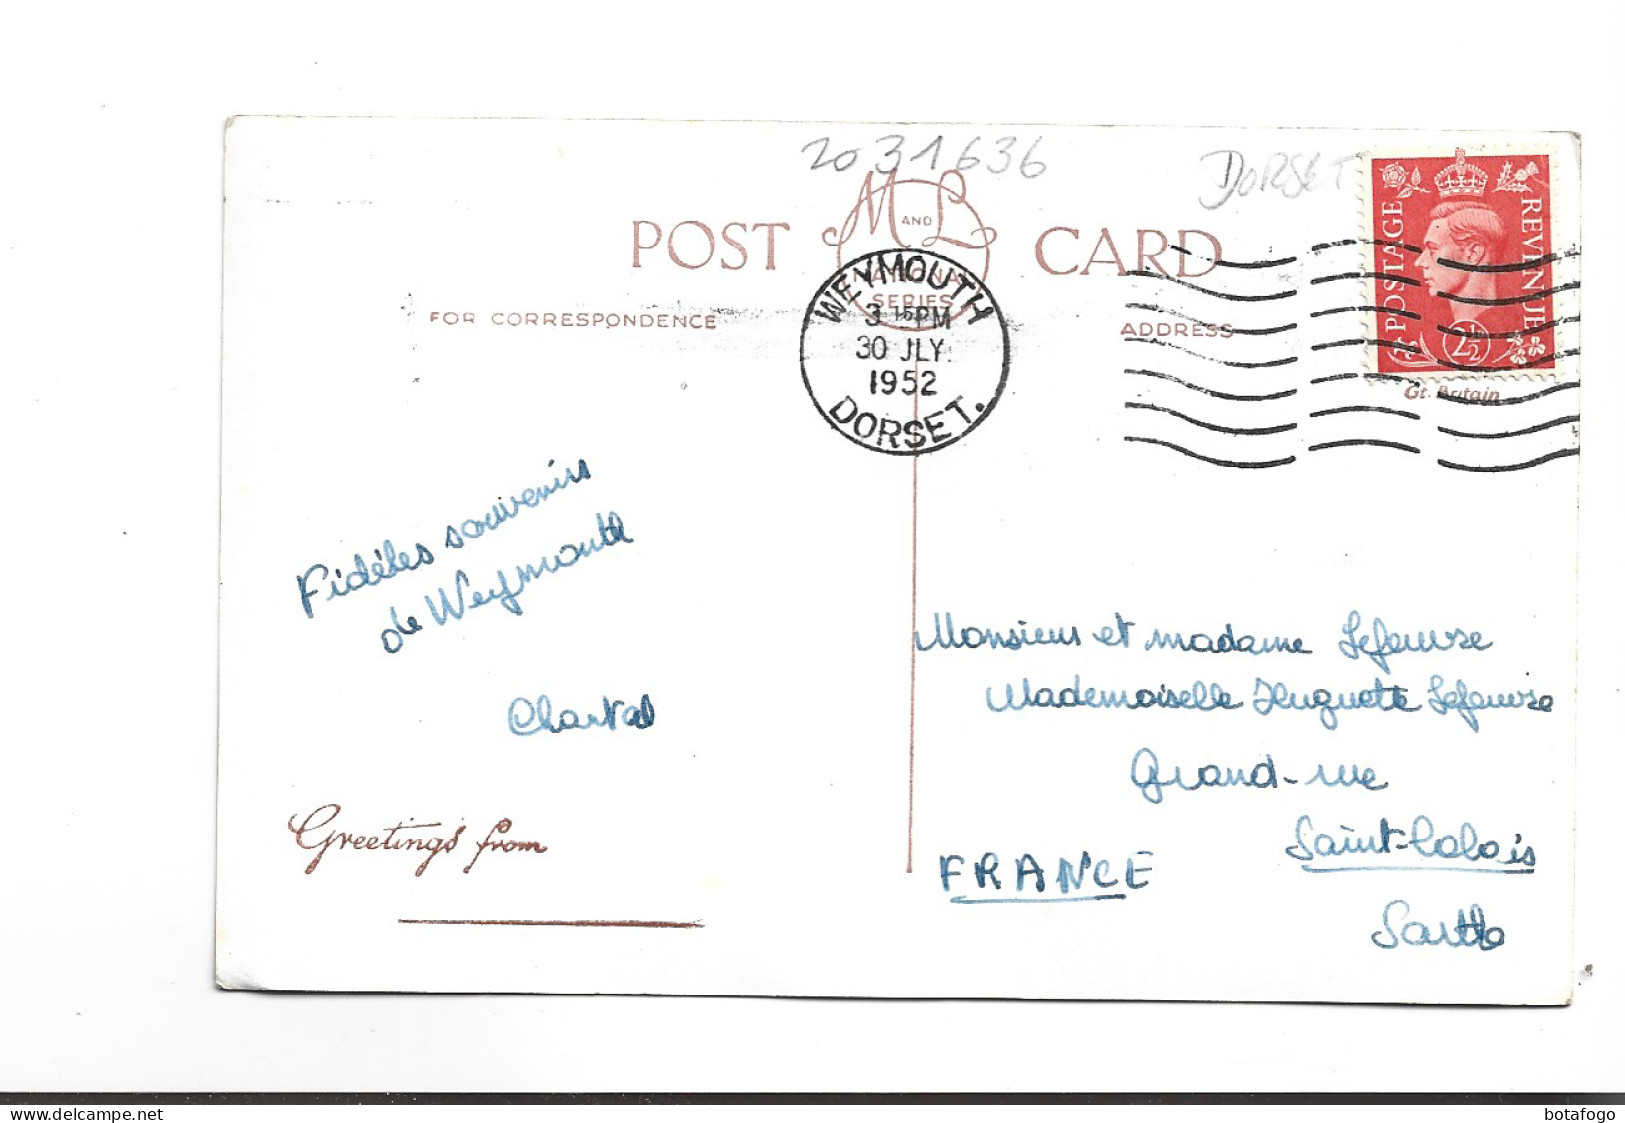 2031636
DORSET
POST CARD
M AND L
NATIONAL
SERIES
FOR CORRESPONDENCE
ADDRESS
WEYMOUTH
3 15 PM
30 JLY
1952
DORSET.
POSTAGE
REVENUE
2½
Gt. Britain
Fidèles souvenirs
de Weymouth
Chantal
Greetings from
Monsieur et madame Lefeuvre
Mademoiselle Huguette Lefeuvre
Grand-rue
Saint-Calais
Sarthe
FRANCE
delcampe.net
botafogo